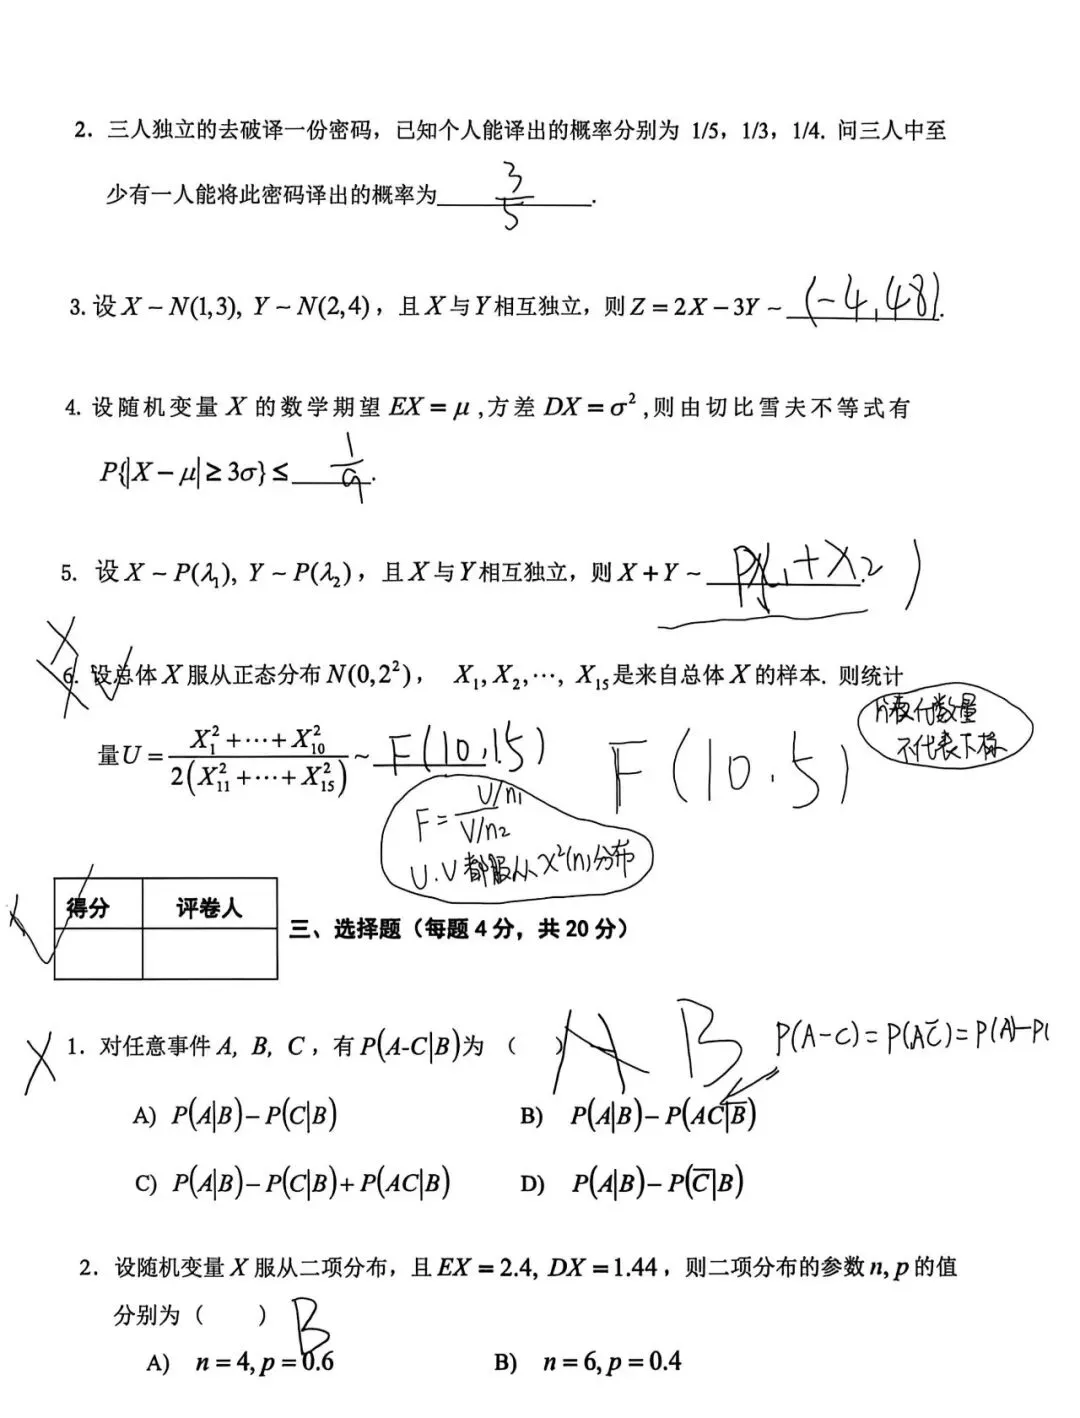 2. 三人独立的去破译一份密码，已知个人能译出的概率分别为 1/5，1/3，1/4. 问三人中至
少有一人能将此密码译出的概率为 3/5 .
3. 设 X ~ N(1,3), Y ~ N(2,4)，且 X 与 Y 相互独立，则 Z = 2X − 3Y ~ (-4,48).
4. 设随机变量 X 的数学期望 EX = μ ,方差 DX = σ² ,则由切比雪夫不等式有
P{|X − μ| ≥ 3σ} ≤ 1/9 .
5. 设 X ~ P(λ₁), Y ~ P(λ₂)，且 X 与 Y 相互独立，则 X + Y ~ P(λ₁+λ₂)
6. 设总体 X 服从正态分布 N(0,2²)， X₁, X₂,⋯, X₁₅ 是来自总体 X 的样本. 则统计
n表示代数量
不代表下标
量 U = (X₁² +⋯+ X₁₀²) / 2(X₁₁² +⋯+ X₁₅²) ~ F(10,15) F(10.5)
F = (U/n₁)/(V/n₂)
U.V都服从X²(n)分布
得分 评卷人
三、选择题（每题 4 分，共 20 分）
1. 对任意事件 A, B, C，有 P(A-C|B)为 （ ） A B P(A-C)=P(AC̅)=P(A)-P(
A) P(A|B) − P(C|B) B) P(A|B) − P(AC|B̅)
C) P(A|B) − P(C|B) + P(AC|B) D) P(A|B) − P(C̅|B)
2. 设随机变量 X 服从二项分布，且 EX = 2.4, DX = 1.44，则二项分布的参数 n, p 的值
分别为（ ） B
A) n = 4, p = 0.6 B) n = 6, p = 0.4